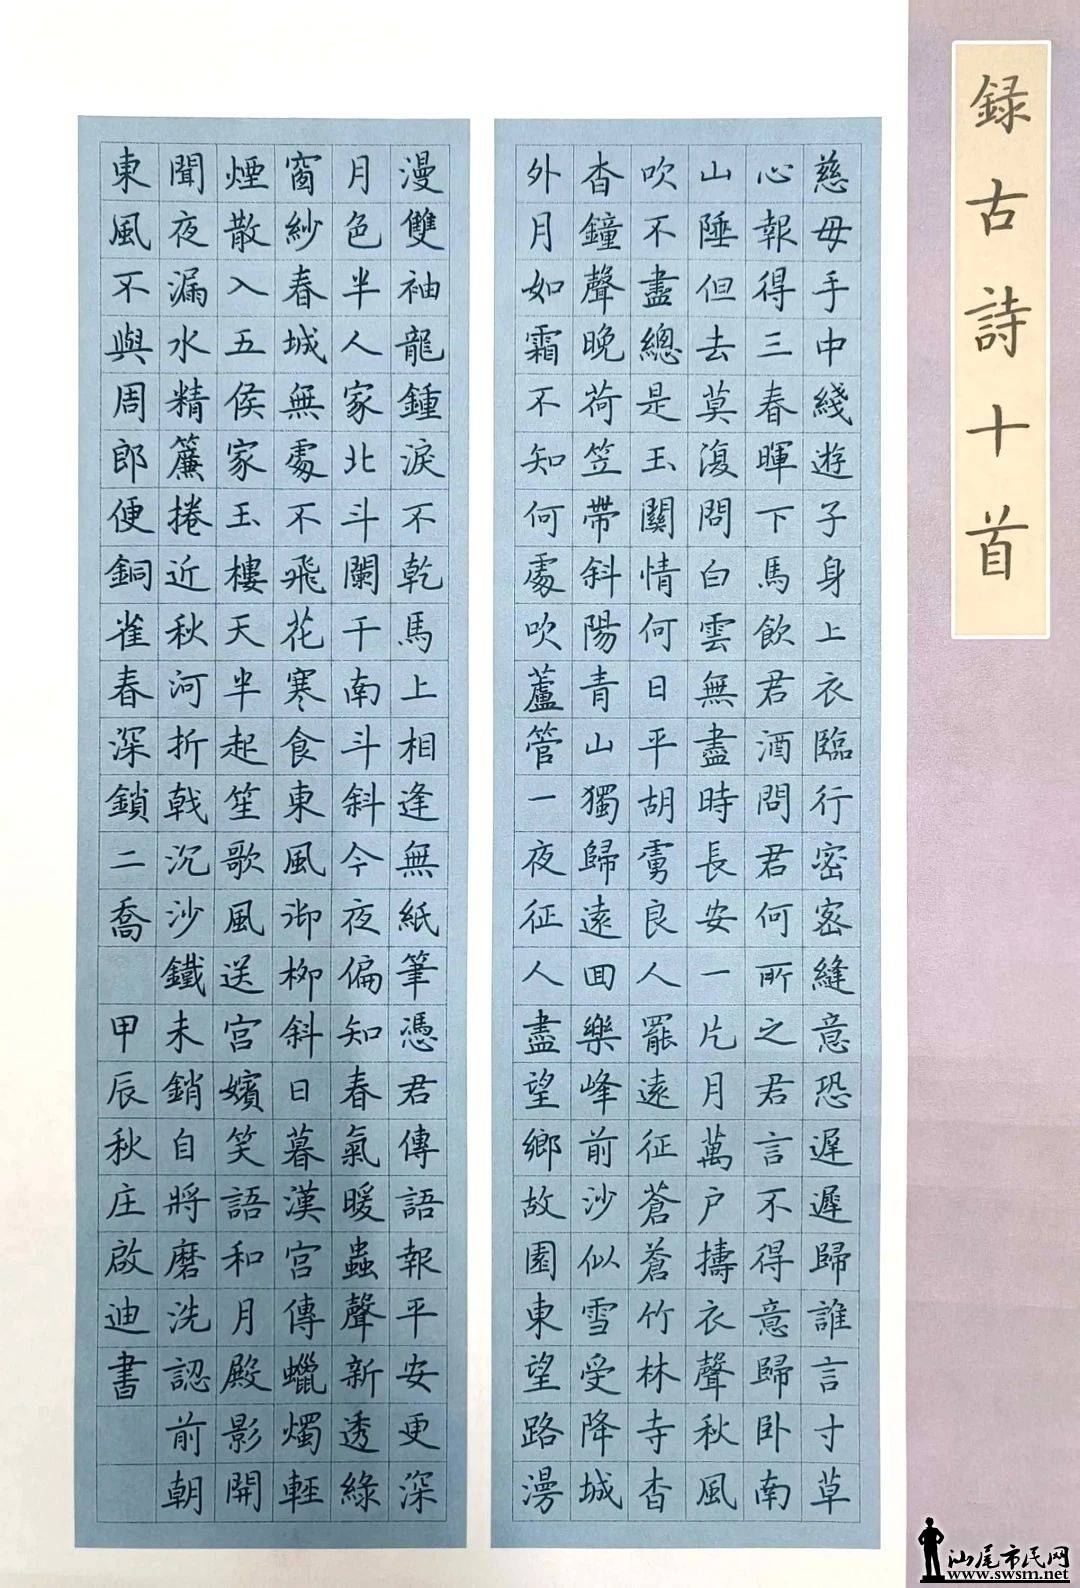 録古詩十首
慈母手中綫遊子身上衣臨行密密縫意恐遲遲歸誰言寸草
心報得三春暉下馬飲君酒問君何所之君言不得意歸卧南
山陲但去莫復問白雲無盡時長安一片月萬户擣衣聲秋風
吹不盡總是玉關情何日平胡虜良人罷遠征蒼蒼竹林寺杳
杳鐘聲晚荷笠帶斜陽青山獨歸遠回樂峰前沙似雪受降城
外月如霜不知何處吹蘆管一夜征人盡望鄉故園東望路漫
漫雙袖龍鍾淚不乾馬上相逢無紙筆憑君傳語報平安更深
月色半人家北斗闌干南斗斜今夜偏知春氣暖蟲聲新透綠
窗紗春城無處不飛花寒食東風御柳斜日暮漢宮傳蠟燭輕
煙散入五侯家玉樓天半起笙歌風送宮嬪笑語和月殿影開
聞夜漏水精簾捲近秋河折戟沉沙鐵未銷自將磨洗認前朝
東風不與周郎便銅雀春深鎖二喬 甲辰秋庄啟迪書
汕尾市民网
www.swsm.net